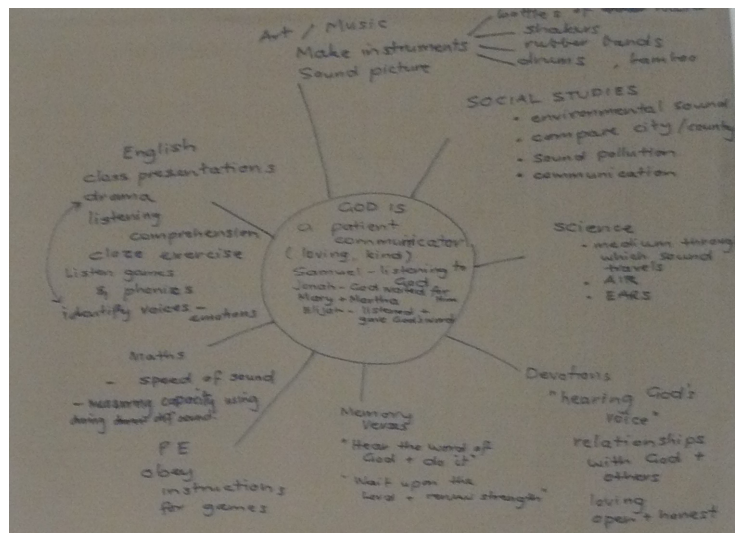 Art / Music
Make instruments
Sound picture
bottles of
shakers
rubber bands
drums, bamboo
SOCIAL STUDIES
• environmental sound
• compare city / country
• sound pollution
• communication
English
class presentations
drama
listening
comprehension
cloze exercise
Listen games
& phonics
identify voices -
emotions
GOD IS
a patient
communicator
(loving, kind)
Samuel - listening to
God
Jonah - God waited for
him
Mary + Martha
Elijah - listened +
gave God's word
Science
- medium through
which sound
travels
• AIR
• EARS
Maths
- speed of sound
- measuring capacity using
sound
PE
obey
instructions
for games
Memory
verses
"Hear the word of
God + do it"
"Wait upon the
Lord + renew strength"
Devotions
"hearing God's
voice"
relationships
with God +
others
loving
open + honest